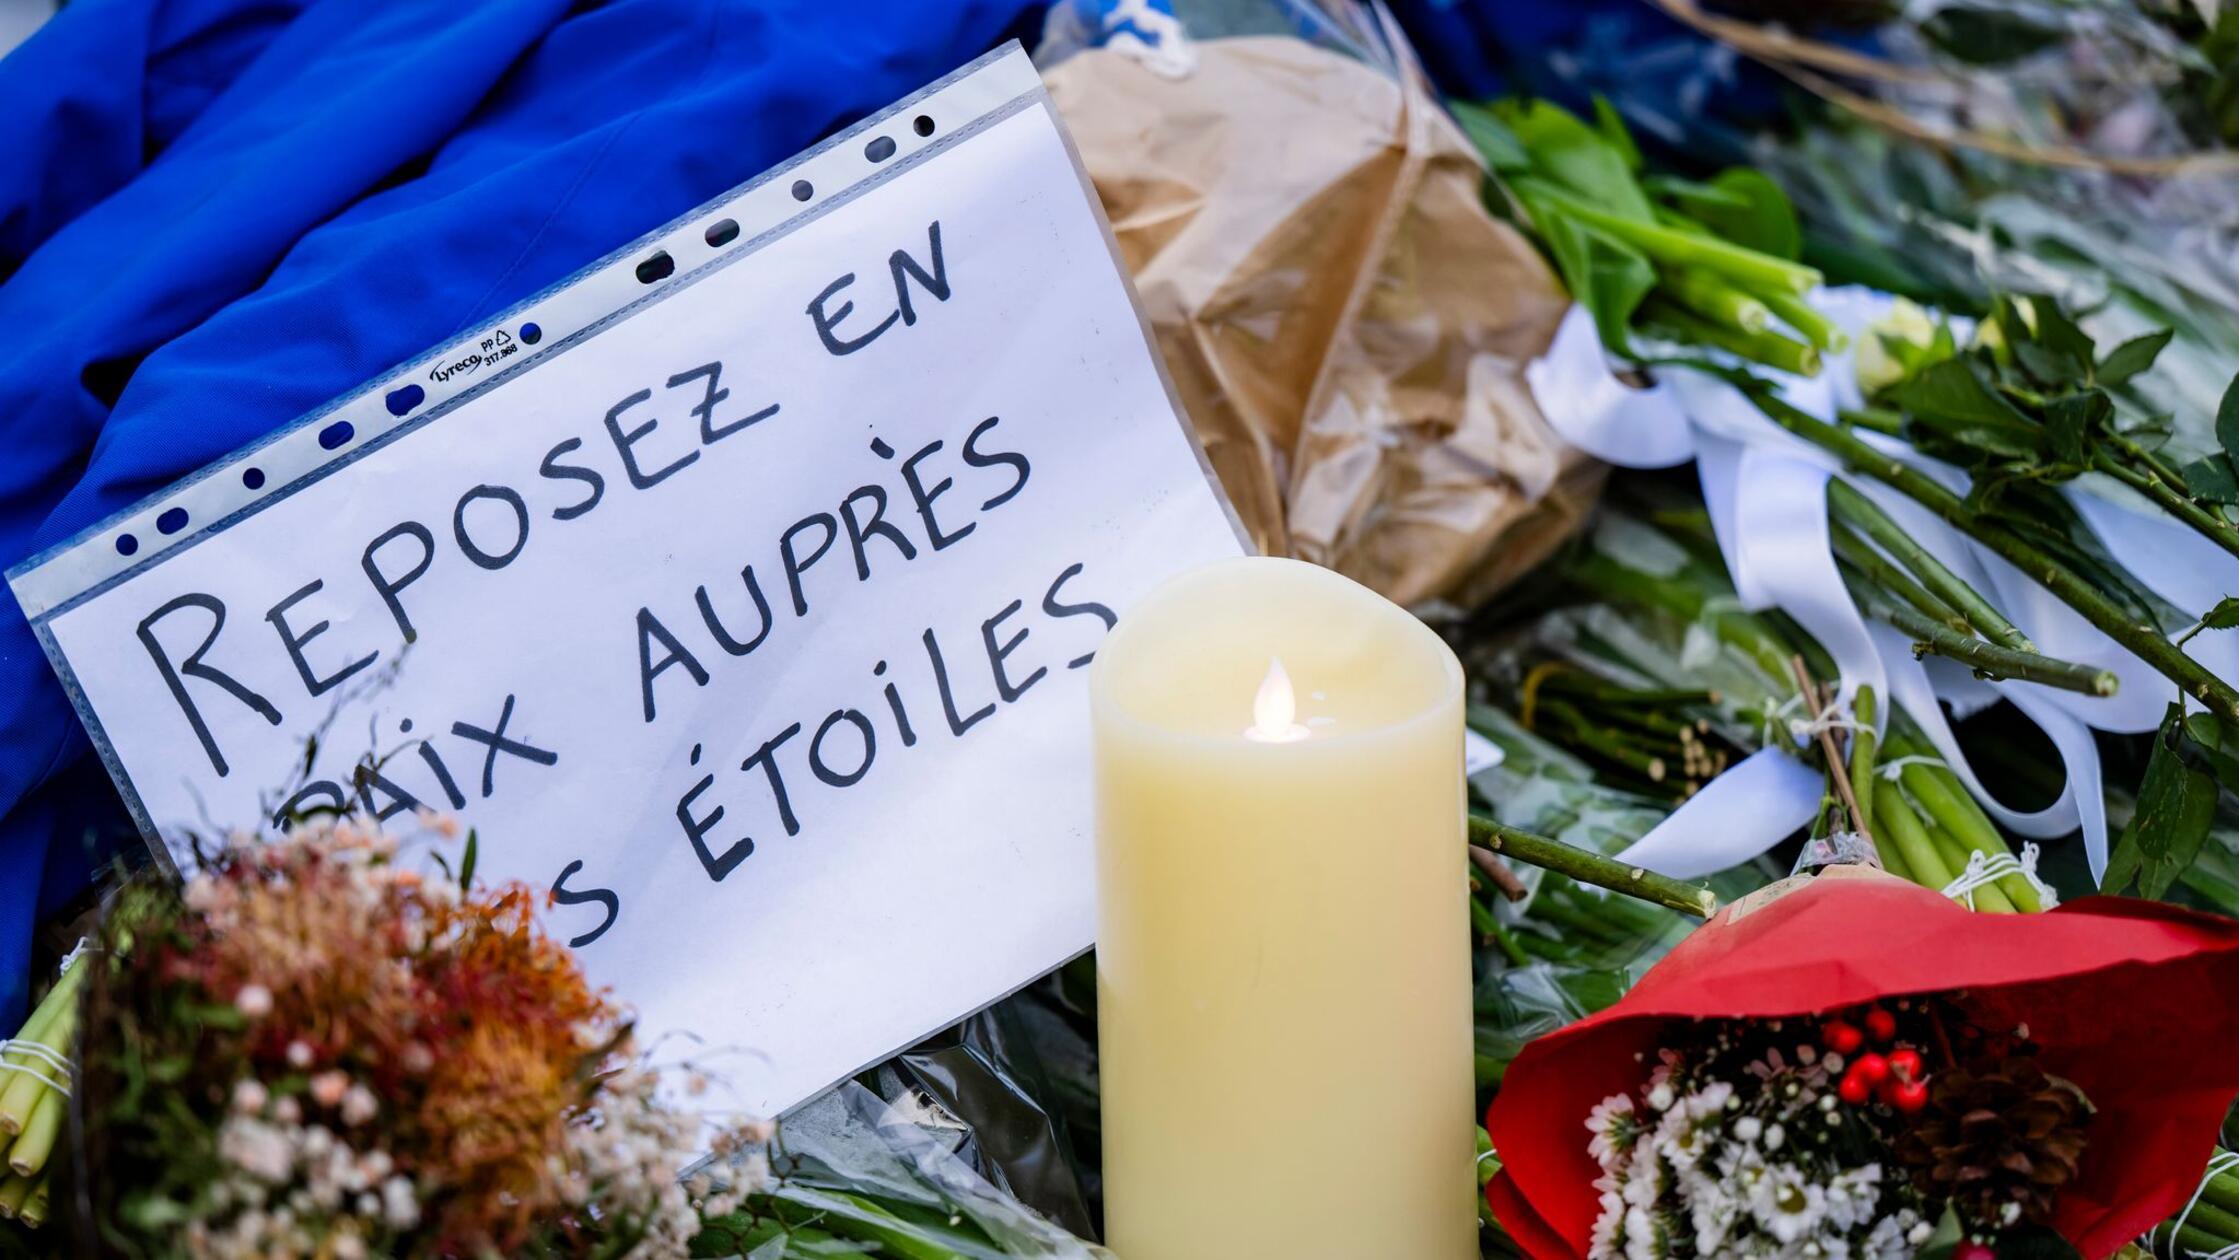 Lyreco PP
317.868
REPOSEZ EN
PAiX AUPRÈS
ÉTOiLES